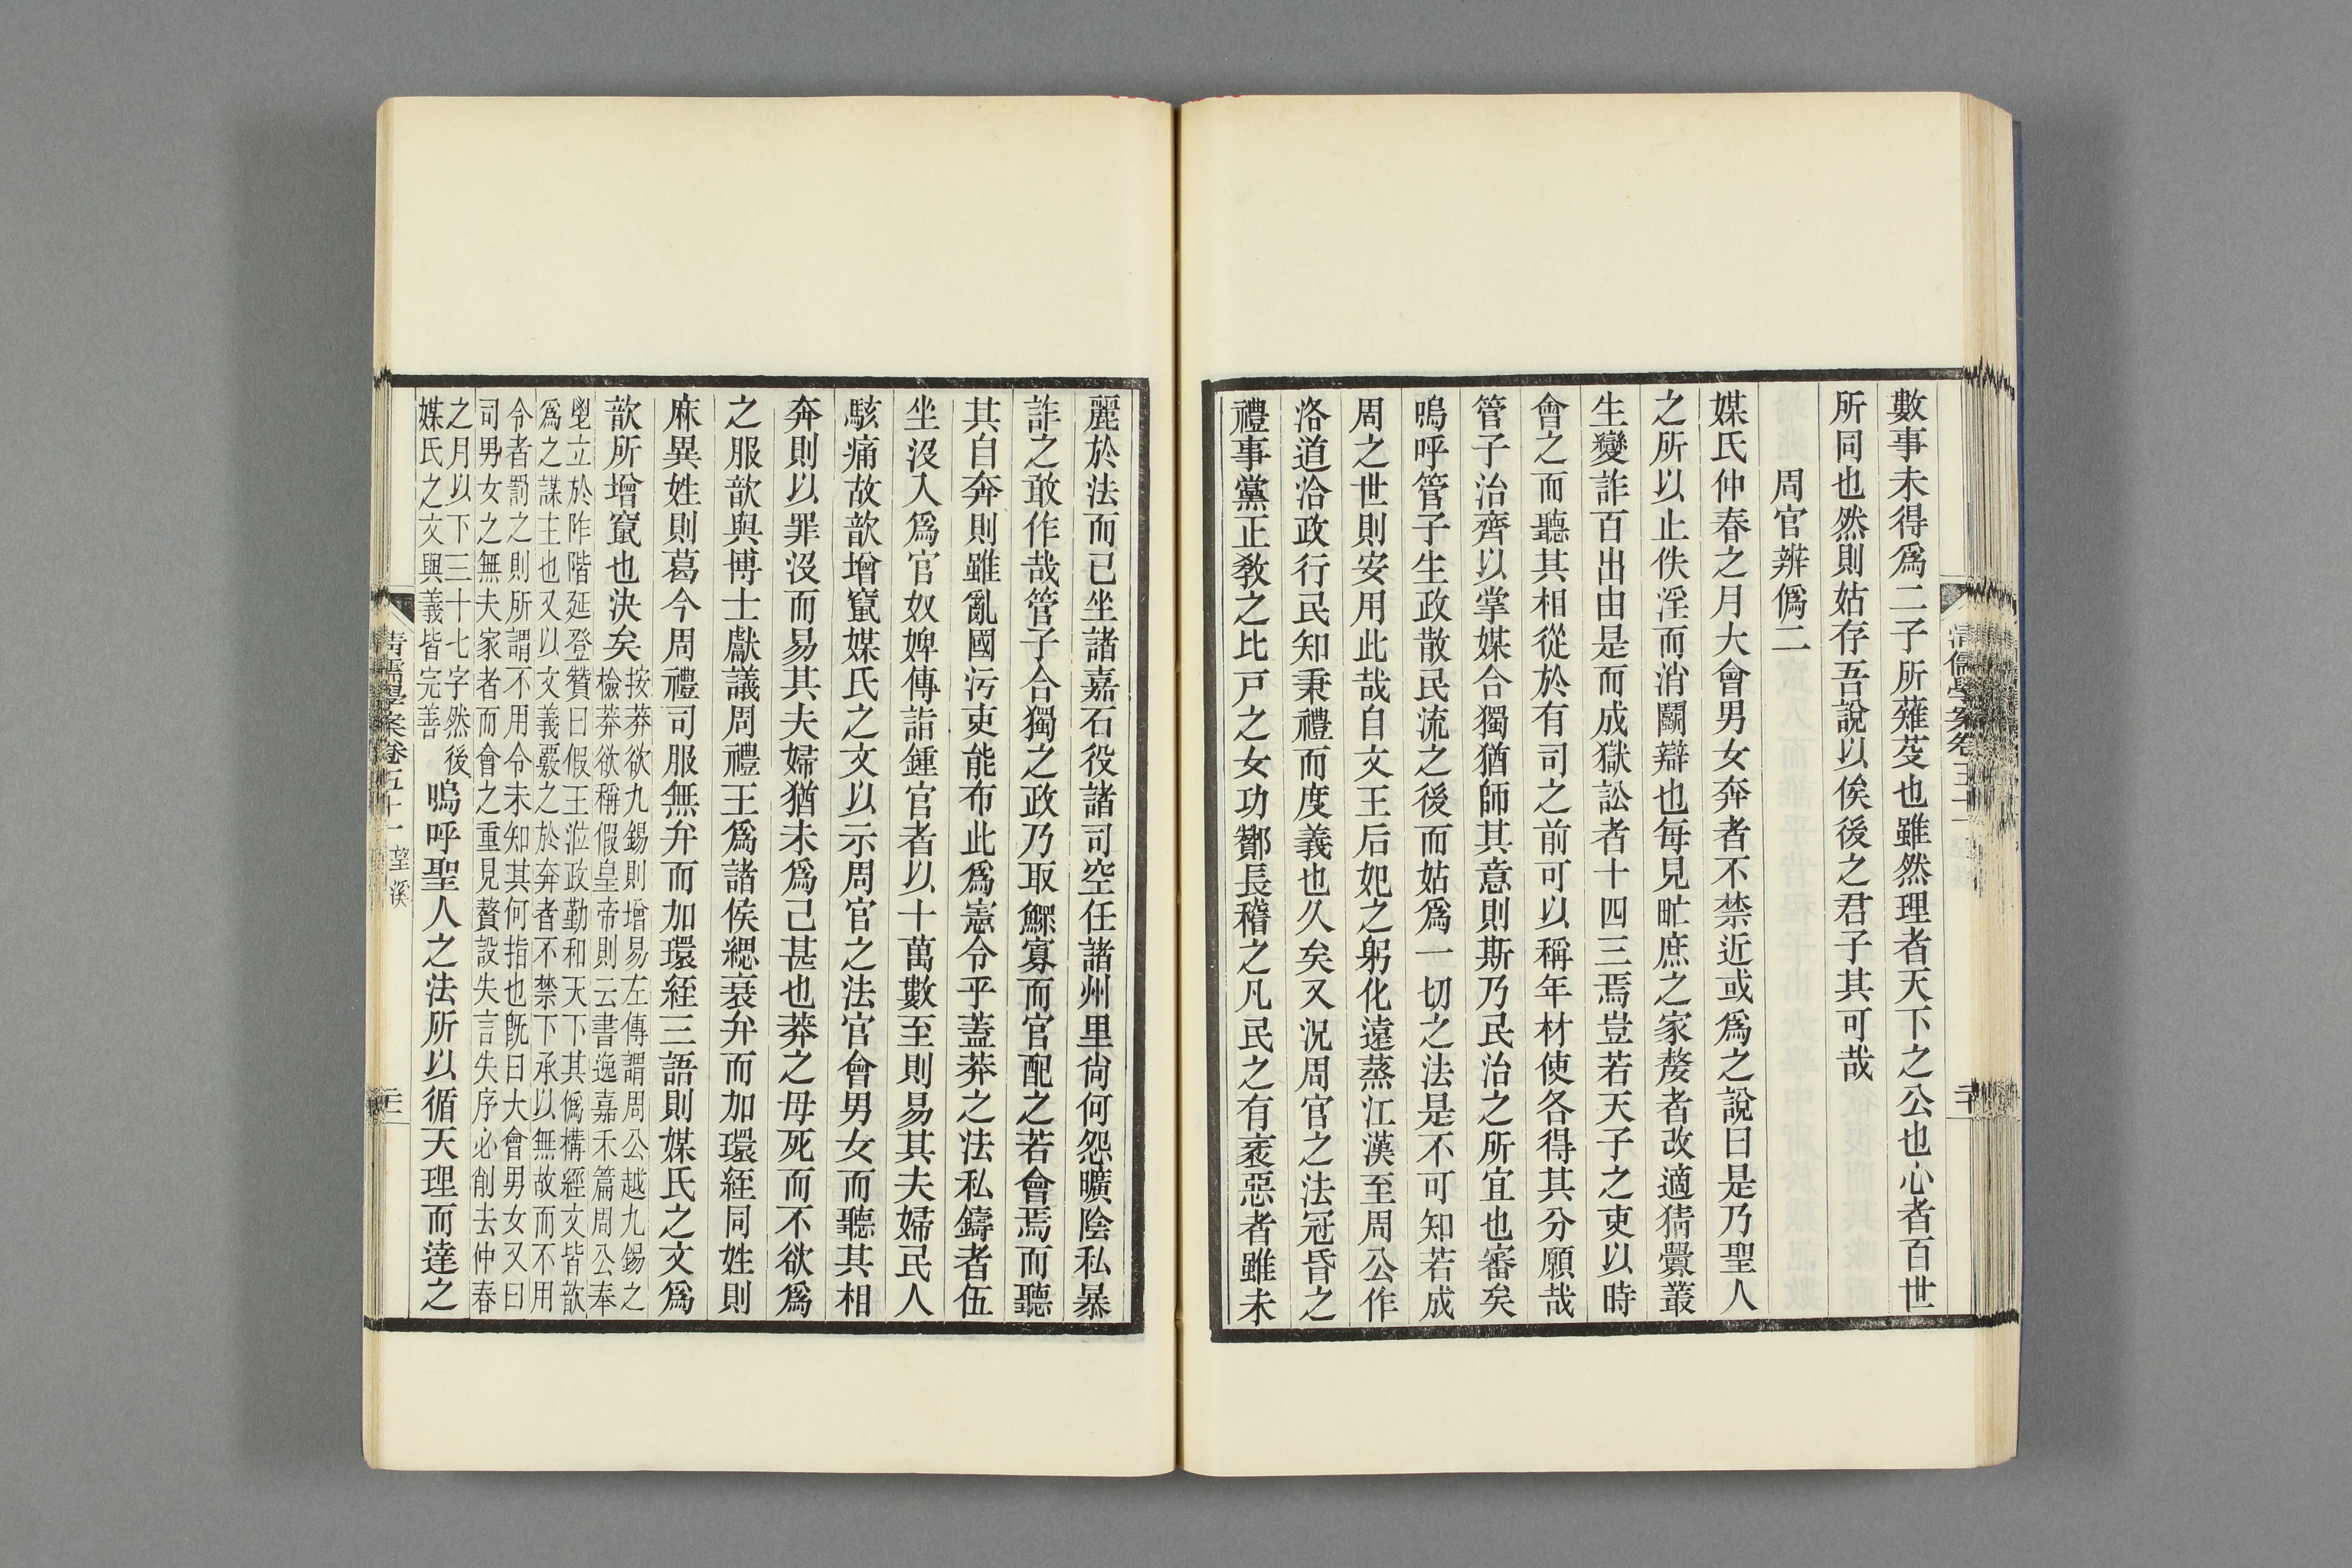 數事未得爲二子所薙芟也雖然理者天下之公也心者百世
所同也然則姑存吾說以俟後之君子其可哉
周官辨僞二
媒氏仲春之月大會男女奔者不禁近或爲之說曰是乃聖人
之所以止佚淫而消鬭辯也每見甿庶之家嫠者改適猜釁叢
生變詐百出由是而成獄訟者十四三焉豈若天子之吏以時
會之而聽其相從於有司之前可以稱年材使各得其分願哉
管子治齊以掌媒合獨猶師其意則斯乃民治之所宜也審矣
嗚呼管子生政散民流之後而姑爲一切之法是不可知若成
周之世則安用此哉自文王后妃之躬化遠蒸江漢至周公作
洛道洽政行民知秉禮而度義也久矣又況周官之法冠昏之
禮事黨正教之比戸之女功酇長稽之凡民之有衺惡者雖未
麗於法而已坐諸嘉石役諸司空任諸州里尙何怨曠陰私暴
詐之敢作哉管子合獨之政乃取鰥寡而官配之若會焉而聽
其自奔則雖亂國污吏能布此爲憲令乎蓋莽之法私鑄者伍
坐沒入爲官奴婢傳詣鍾官者以十萬數至則易其夫婦民人
駭痛故歆增竄媒氏之文以示周官之法官會男女而聽其相
奔則以罪沒而易其夫婦猶未爲已甚也莽之母死而不欲爲
之服歆與博士獻議周禮王爲諸侯緦衰弁而加環絰同姓則
麻異姓則葛今周禮司服無弁而加環絰三語則媒氏之文爲
歆所增竄也決矣
按莽欲九錫則增易左傳謂周公越九錫之
檢莽欲稱假皇帝則云書逸嘉禾篇周公奉
鬯立於阼階延登贊曰假王涖政勤和天下其僞構經文皆歆
爲之謀主也又以文義覈之於奔者不禁下承以無故而不用
令者罰之則所謂不用令未知其何指也旣曰大會男女又曰
司男女之無夫家者而會之重見贅設失言失序必削去仲春
之月以下三十七字然後
媒氏之文與義皆完善
嗚呼聖人之法所以循天理而達之
清儒學案卷五十一
望溪